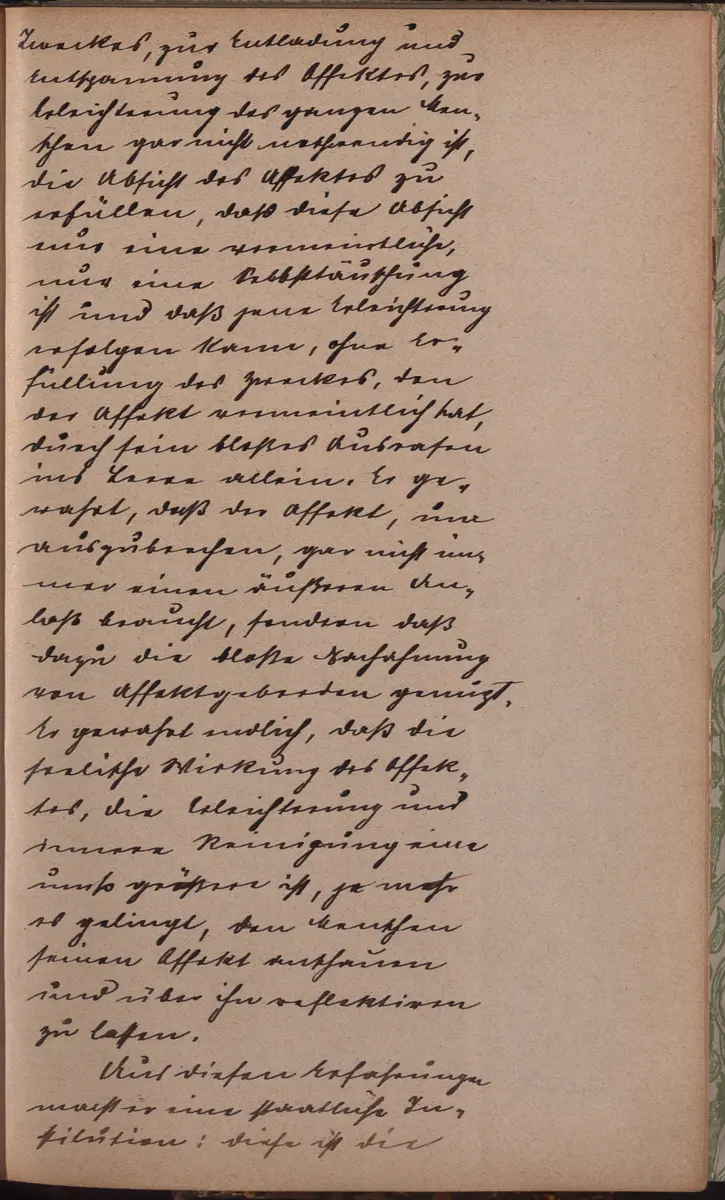 Zweckes, zur Entladung und
Entspannung des Affektes, zur
Erleichterung des ganzen Men-
schen gar nicht nothwendig ist,
die Absicht des Affektes zu
erfüllen, daß diese Absicht
nur eine vermeintliche,
nur eine Selbsttäuschung
ist und daß jene Erleichterung
erfolgen kann, ohne Er-
füllung des Zweckes, den
der Affekt vermeintlich hat,
durch sein bloßes Ausrasen
ins Leere allein. Er ge-
wahrt, daß der Affekt, um
auszubrechen, gar nicht im-
mer einen äußeren An-
laß braucht, sondern daß
dazu die bloße Nachahmung
von Affektgeberden genügt.
Er gewahrt endlich, daß die
seelische Wirkung des Affek-
tes, die Erleichterung und
innere Reinigung eine
umso größere ist, je mehr
es gelingt, den Menschen
seinen Affekt anschauen
und über ihn reflektiren
zu lassen.
Aus diesen Erfahrungen
macht er eine staatliche In-
stitution: diese ist die